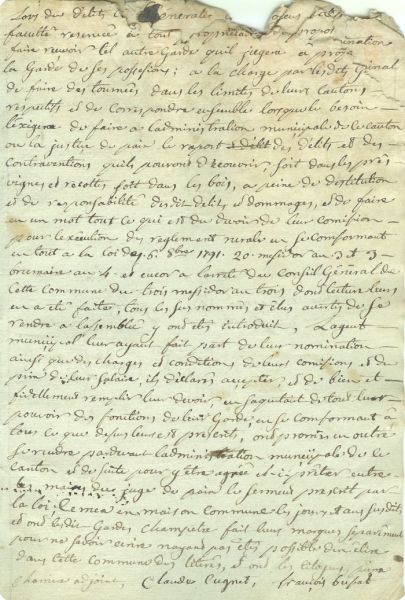 Lors du délits et Generales
faculté reservée à tout propriétaires
faire recevoir tel autre Garde qu'il jugera à propos
la Garde de ses possesions; a la charge par lesdits General
de faire des tournées dans les limites de leurs cantons
respectifs et de correspondre ensemble lorsque le besoin
l'exigera de faire a ladministration municipale de ce canton
ou la justice de paix le raport desdit des délits et des
contraventions qu'ils pouront découvrir, soit dans les prés
vignes et recoltes soit dans les bois, a peine de destitution
et de responsabilité desdit delits et dommages, et de faire
en un mot tout ce qui est du devoir de leur comission
pour lexécution des reglement rurale en se conformant
en tout a la loi des 6. 8bre 1791. 20 mesidor an 3 et 3
brumaire an 4 et encor a larreté du Conseil Général de
cette Commune du trois messidor an trois dont lecture leurs
en a été faite, tous les sus nommés et élus avertis de se
rendre a lasemblée y ont etés introduit, Lagent
municipal leur ayant fait part de leur nomination
ainsi que des charges et conditions de leurs comisions, et du
prix de leur salaire ils déclaré accepter et de bien et
fidellement remplir leur devoir en saquitant de tout leur
pouvoir des fonctions de leur Garde, en se comformant à
tous ce que desus leurs est présent, ont promis en outre
se rendre pardevant ladministration municipale de ce
Canton et de suite pour y être agréé et prêter entre
les mains du juge de paix le serment prescrit par
la loi; Remis en maison Commune les jour et ans susdit,
et ont lesdit Gardes Champetre fait leurs marques séparément
pour ne savoir écrire nayans pas étés possible den élire
dans cette commune des létrés, et ont les citoyens
adjoint, Claude Cugnet, françois